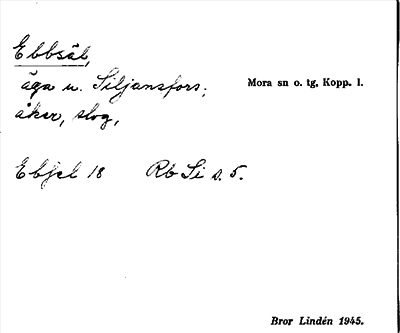 Ebbsäl,
äga u. Siljansfors; Mora sn o. tg, Kopp. l.
åker, slog,
Ebjel 18 Rb Si s. 5.
Bror Lindén 1945.